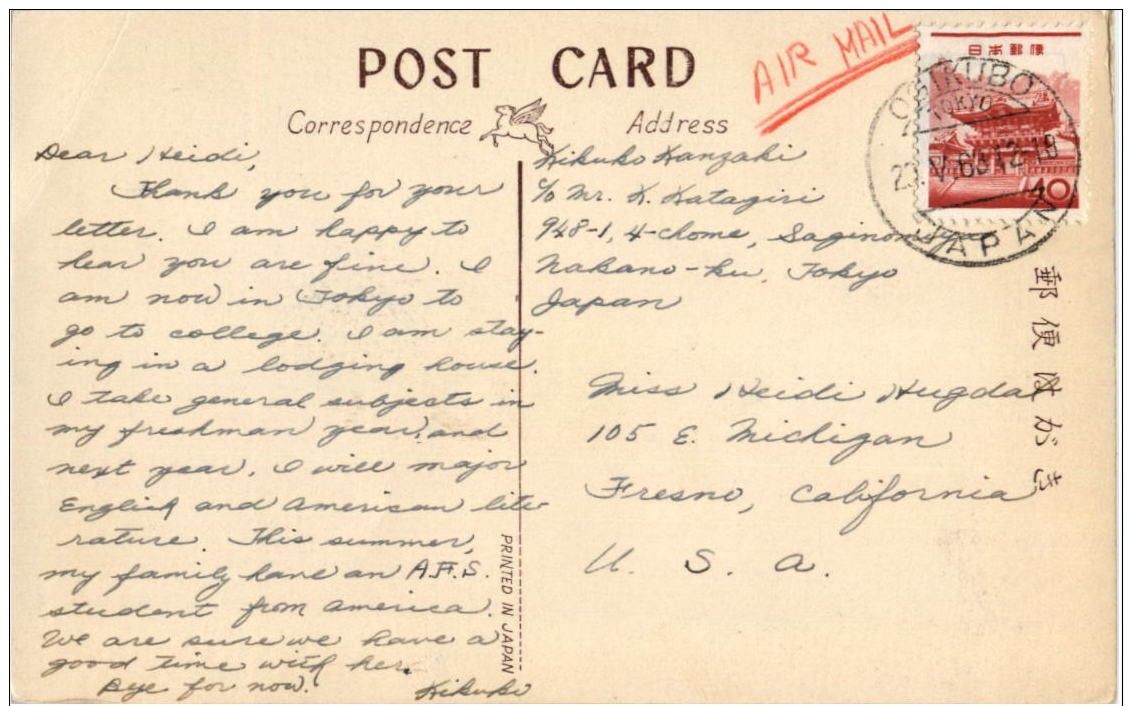 POST CARD
Correspondence
Address
AIR MAIL
日本郵便
TOKYO
JAPAN
40
Dear Heidi,
Thank you for your
letter. I am happy to
hear you are fine. I
am now in Tokyo to
go to college. I am stay-
ing in a lodging house.
I take general subjects in
my freshman year, and
next year, I will major
English and American lite-
rature. This summer,
my family have an A.F.S.
student from America.
We are sure we have a
good time with her.
Bye for now.
Kikuko
Kikuko Kanzaki
c/o Mr. K. Katagiri
948-1, 4-chome,
Nakano-ku, Tokyo
Japan
Miss Heidi
105 E. Michigan
Fresno, California
U. S. A.
郵便はがき
PRINTED IN JAPAN